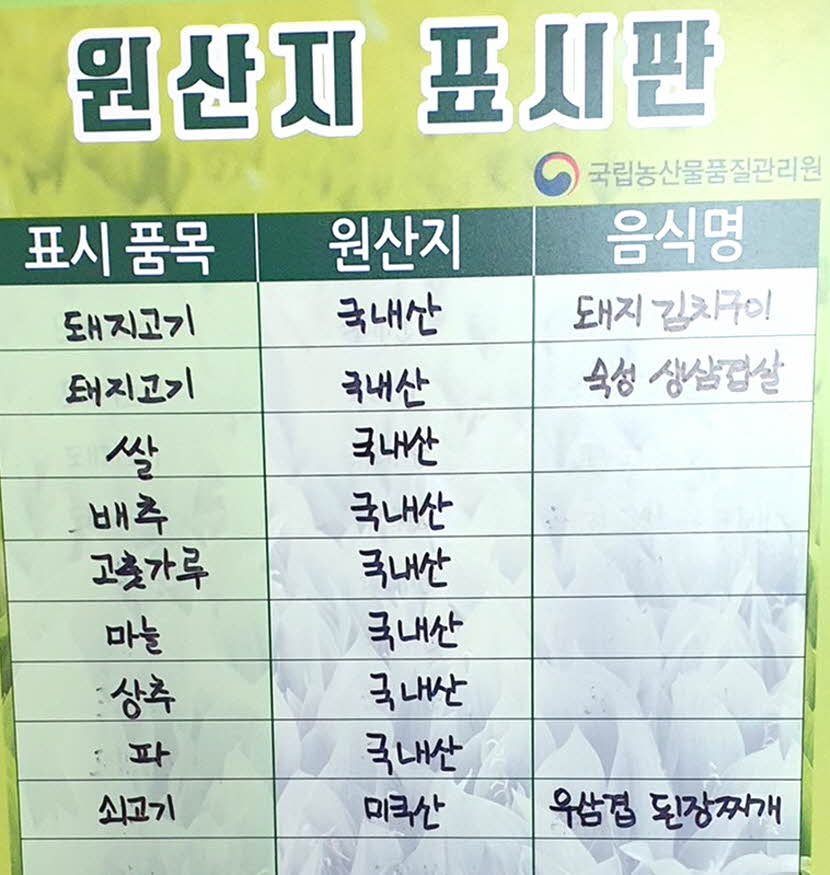 원산지 표시판
국립농산물품질관리원
표시 품목 원산지 음식명
돼지고기 국내산 돼지 김치구이
돼지고기 국내산 숙성 생삼겹살
쌀 국내산
배추 국내산
고춧가루 국내산
마늘 국내산
상추 국내산
파 국내산
쇠고기 미국산 우삼겹 된장찌개